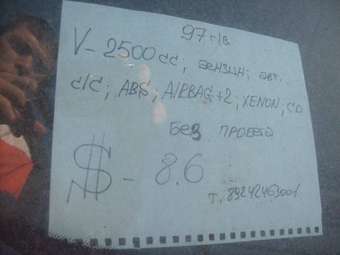 97 г/в
V- 2500 cc; бензин; авт.
с/с; ABS; AIRBAG+2; XENON; CD
Без пробега
$ - 8.6
т. 89242463001